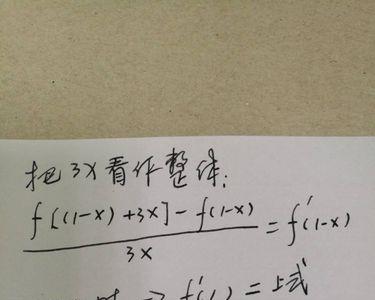 把3x看作整体:
f[(1-x)+3x]-f(1-x) / 3x = f'(1-x)
时 ⇒ f'(1) = 上式